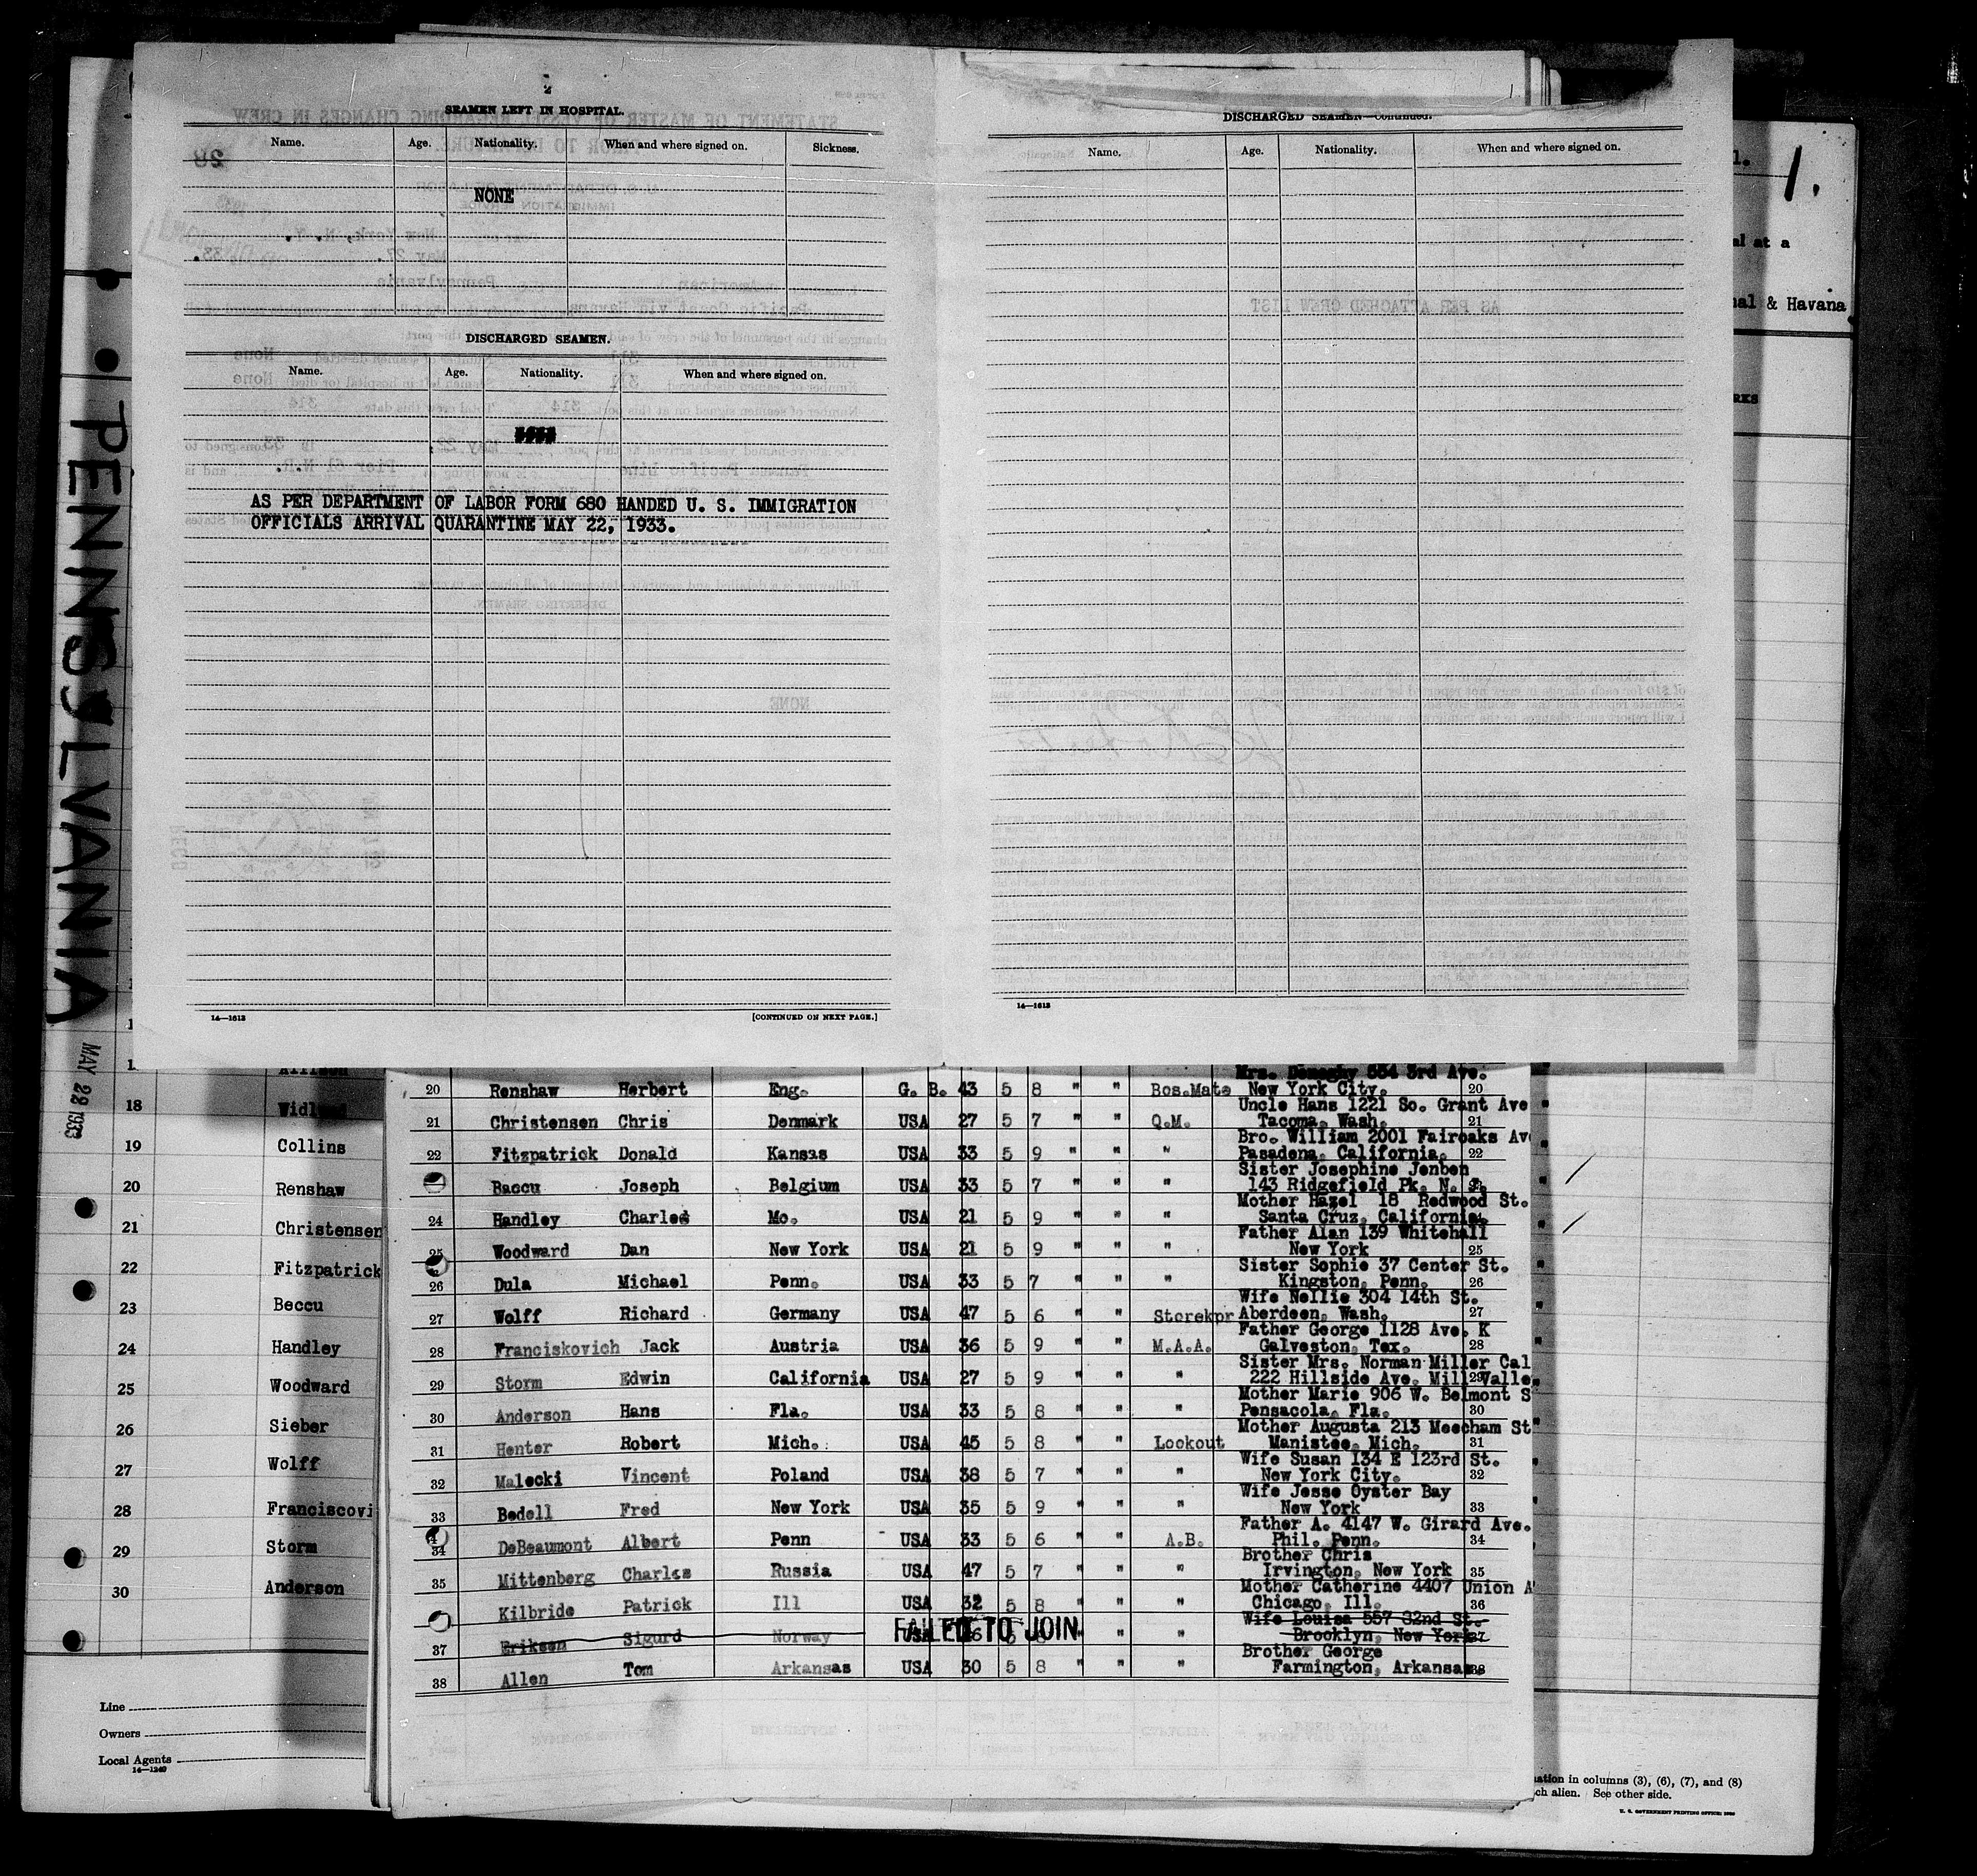 2
SEAMEN LEFT IN HOSPITAL.
Name. Age. Nationality. When and where signed on. Sickness.
NONE
DISCHARGED SEAMEN.
Name. Age. Nationality. When and where signed on.
AS PER DEPARTMENT OF LABOR FORM 680 HANDED U. S. IMMIGRATION
OFFICIALS ARRIVAL QUARANTINE MAY 22, 1933.
14—1613
[CONTINUED ON NEXT PAGE.]
DISCHARGED SEAMEN—Continued.
Name. Age. Nationality. When and where signed on.
14—1613
1.
al at a
nal & Havana
RKS
PENNSYLVANIA
MAY 22 1933
18 Widlund
19 Collins
20 Renshaw
21 Christensen
22 Fitzpatrick
23 Beccu
24 Handley
25 Woodward
26 Sieber
27 Wolff
28 Franciscovi
29 Storm
30 Anderson
Line
Owners
Local Agents
14—1240
Mrs. Donaghy 334 3rd Ave.
20 Renshaw Herbert Eng. G. B. 43 5 8 " " Bos.Mate New York City. 20
Uncle Hans 1221 So. Grant Ave
21 Christensen Chris Denmark USA 27 5 7 " " Q.M. Tacoma, Wash. 21
Bro. William 2001 Fairoaks Av
22 Fitzpatrick Donald Kansas USA 33 5 9 " " " Pasadena, California. 22
Sister Josephine Jenben
Baccu Joseph Belgium USA 33 5 7 " " " 143 Ridgefield Pk. N. J.
Mother Hazel 18 Redwood St.
24 Handley Charles Mo. USA 21 5 9 " " " Santa Cruz, California.
Father Alan 139 Whitehall
25 Woodward Dan New York USA 21 5 9 " " " New York 25
Sister Sophie 37 Center St.
26 Dula Michael Penn. USA 33 5 7 " " " Kingston, Penn. 26
Wife Nellie 304 14th St.
27 Wolff Richard Germany USA 47 5 6 " " Storekpr Aberdeen, Wash. 27
Father George 1128 Ave. K
28 Franciskovich Jack Austria USA 36 5 9 " " M.A.A. Galveston, Tex. 28
Sister Mrs. Norman Miller Cal
29 Storm Edwin California USA 27 5 9 " " " 222 Hillside Ave. Mill Valle, 29
Mother Marie 906 W. Belmont S
30 Anderson Hans Fla. USA 33 5 8 " " " Pensacola, Fla. 30
Mother Augusta 213 Meecham St
31 Henter Robert Mich. USA 45 5 8 " " Lookout Manistee, Mich. 31
Wife Susan 134 E 123rd St.
32 Malecki Vincent Poland USA 38 5 7 " " " New York City. 32
Wife Jesse Oyster Bay
33 Bedell Fred New York USA 35 5 9 " " " New York 33
Father A. 4147 W. Girard Ave.
34 DeBeaumont Albert Penn USA 33 5 6 " " A.B. Phil. Penn. 34
Brother Chris
35 Mittenberg Charles Russia USA 47 5 7 " " " Irvington, New York 35
Mother Catherine 4407 Union A
36 Kilbride Patrick Ill USA 32 5 8 " " " Chicago, Ill.
Wife Louisa 557 32nd St.
37 Eriksen Sigurd Norway FAILED TO JOIN " Brooklyn, New York 37
Brother George
38 Allen Tom Arkansas USA 30 5 8 " " " Farmington, Arkansas. 38
ation in columns (3), (6), (7), and (8)
ch alien. See other side.
U. S. GOVERNMENT PRINTING OFFICE: 1930